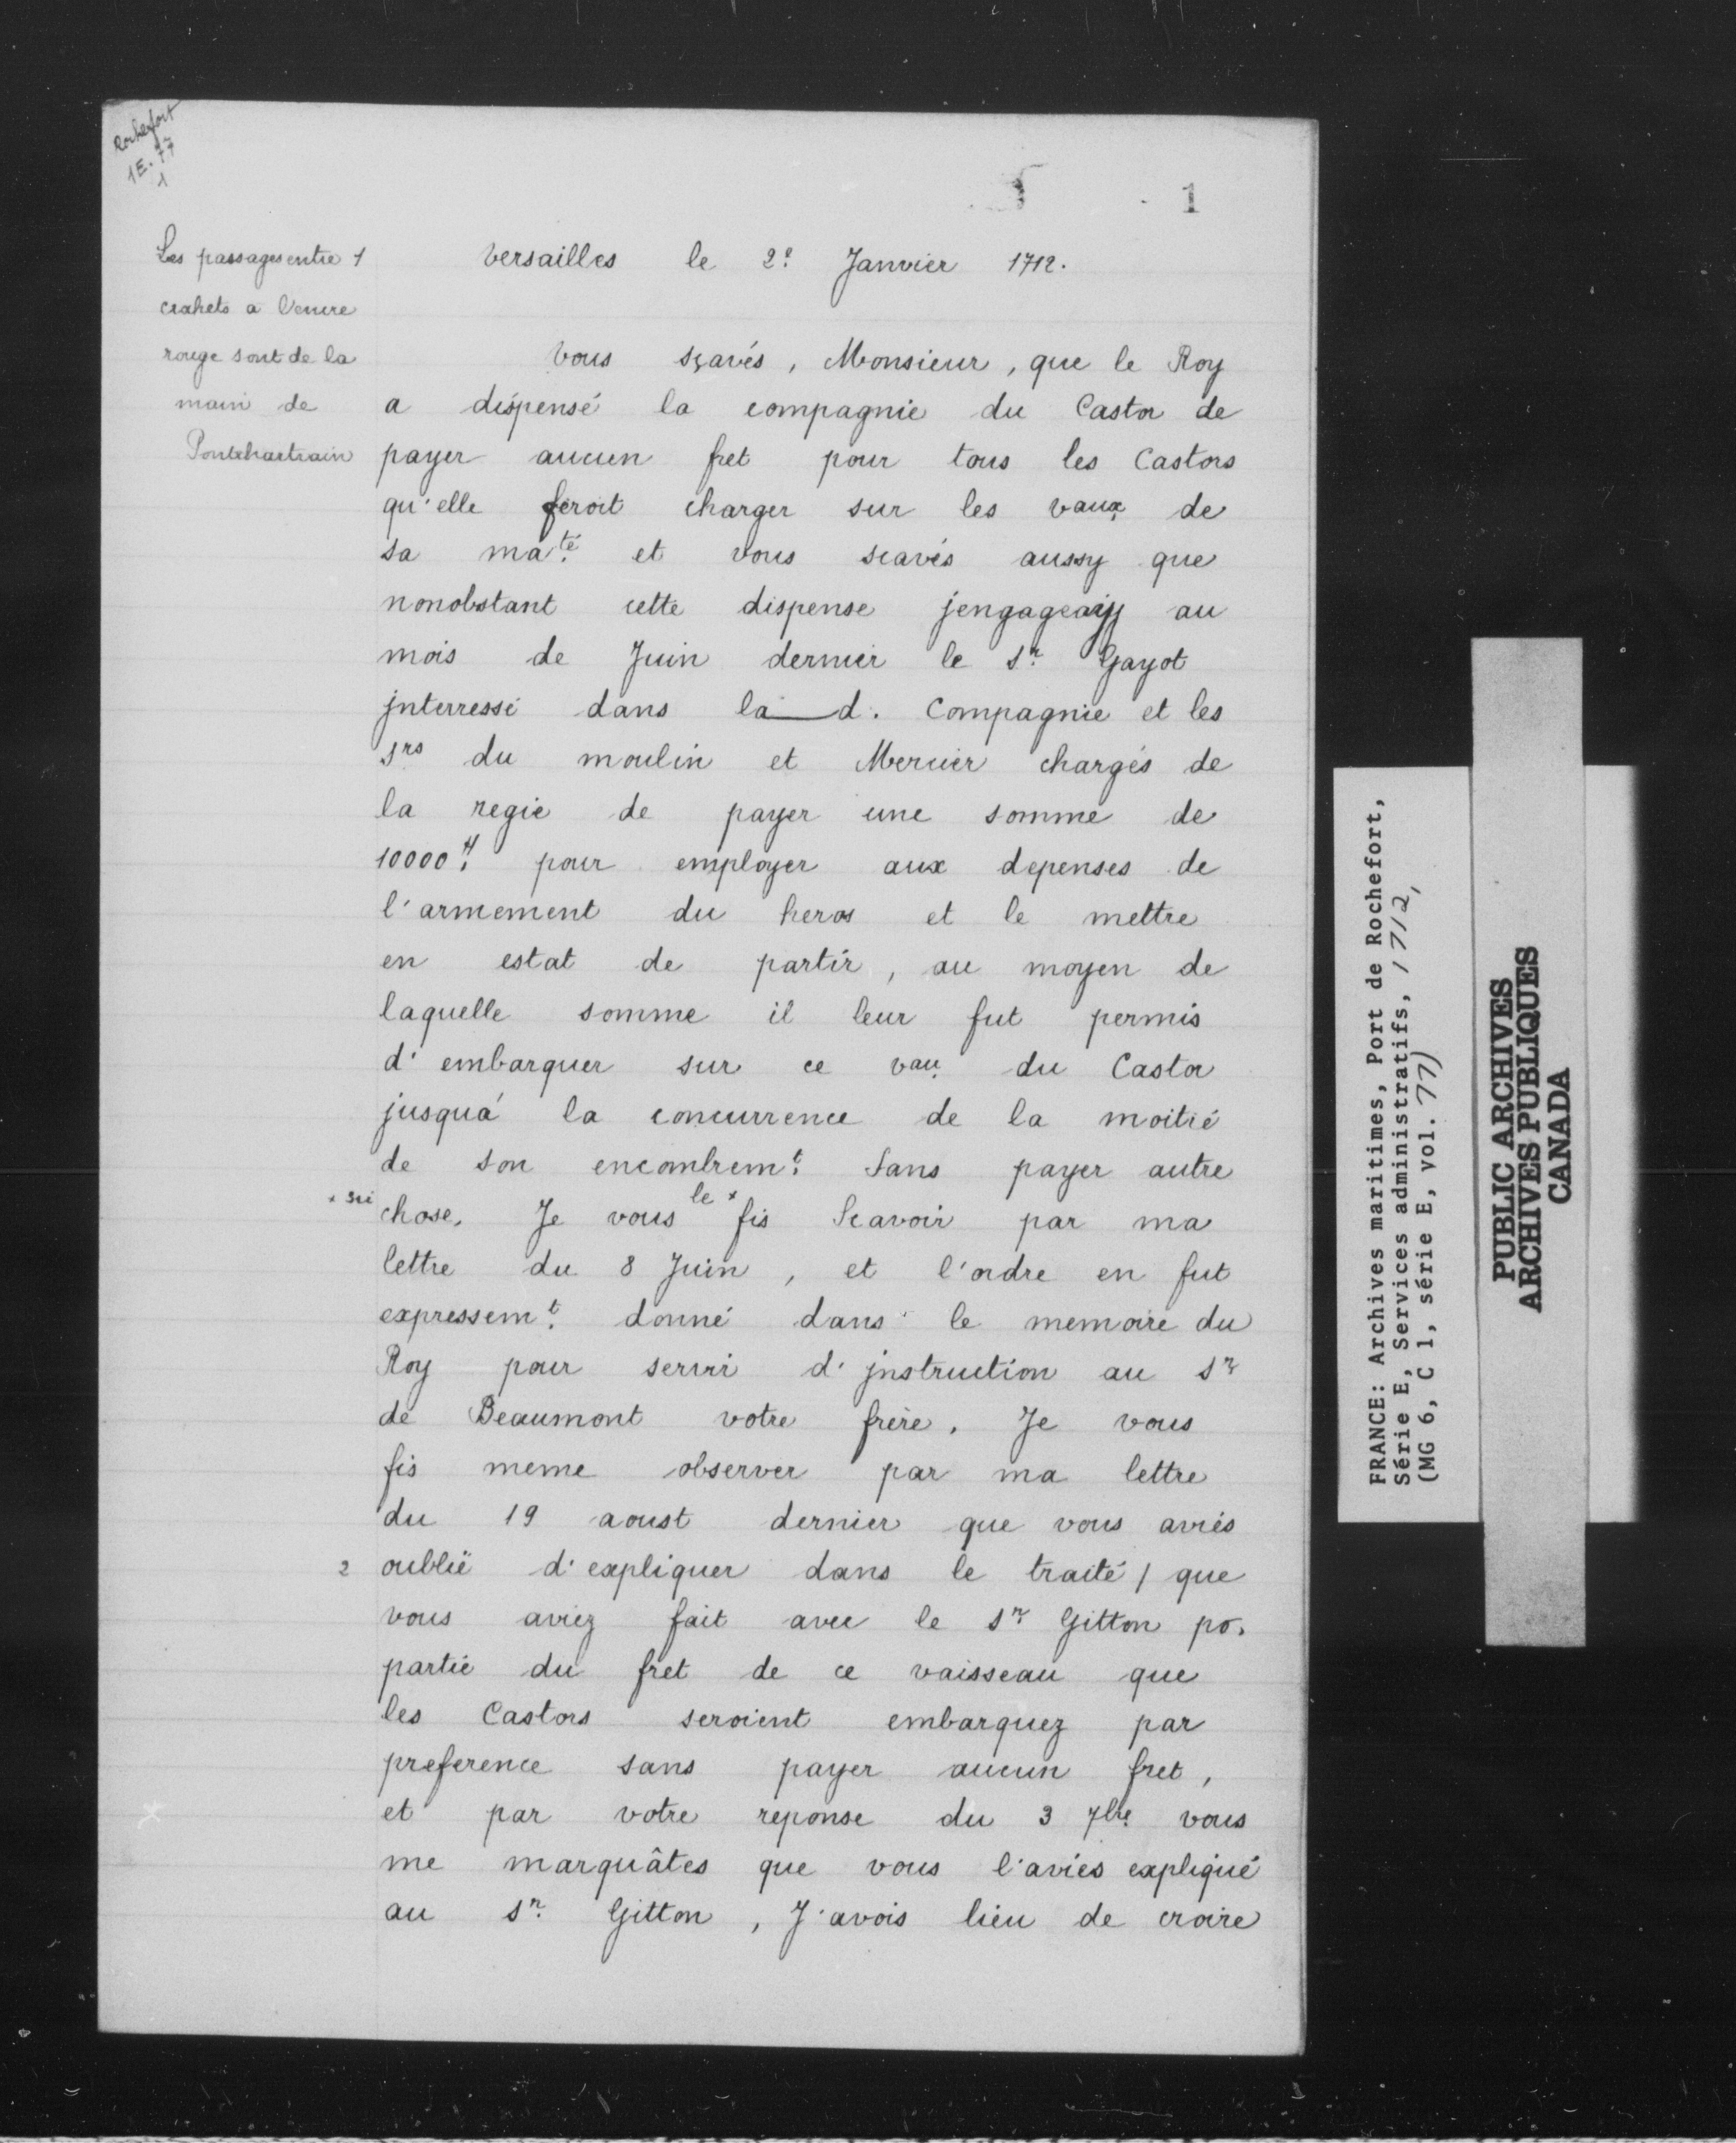 Rochefort
1E. 77
1
1
Les passages entre 1
crohets a l'encre
rouge sont de la
main de
Pontchartrain
Versailles le 2e Janvier 1712.
Vous sçavés, Monsieur, que le Roy
a dispensé la compagnie du Castor de
payer aucun fret pour tous les Castors
qu'elle feroit charger sur les vaux de
sa maté et vous scavés aussy que
nonobstant cette dispense jengageay au
mois de Juin dernier le Sr Gayot
jnterressé dans la d. Compagnie et les
Srs du moulin et Mercier chargés de
la regie de payer une somme de
10000ⴕ pour employer aux depenses de
l'armement du heros et le mettre
en estat de partir, au moyen de
laquelle somme il leur fut permis
d'embarquer sur ce vau du Castor
jusquá la concurrence de la moitié
de son encombremt Sans payer autre
x sic
chose. Je vous le x fis Scavoir par ma
lettre du 8 Juin, et l'ordre en fut
expressemt donné dans le memoire du
Roy pour servir d'jnstruction au Sr
de Beaumont votre frère. Je vous
fis meme observer par ma lettre
du 19 aoust dernier que vous aviés
2 oublié d'expliquer dans le traité / que
vous aviez fait avec le Sr Gitton po.
partie du fret de ce vaisseau que
les Castors seroient embarquez par
preference sans payer aucun fret,
et par votre reponse du 3 7bre vous
me marquâtes que vous l'aviés expliqué
au Sr Gitton, J'avois lieu de croire
FRANCE: Archives maritimes, Port de Rochefort,
Série E, Services administratifs, 1712,
(MG 6, C 1, série E, vol. 77)
PUBLIC ARCHIVES
ARCHIVES PUBLIQUES
CANADA